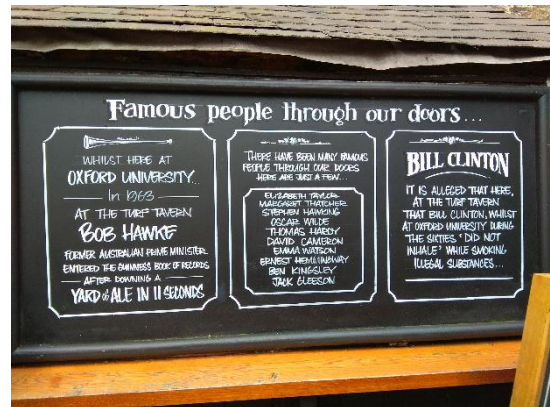 Famous people through our doors...
WHILST HERE AT
OXFORD UNIVERSITY...
In 1963
AT THE TURF TAVERN
BOB HAWKE
FORMER AUSTRALIAN PRIME MINISTER
ENTERED THE GUINNESS BOOK OF RECORDS
AFTER DOWNING A
YARD of ALE IN 11 SECONDS
THERE HAVE BEEN MANY FAMOUS
PEOPLE THROUGH OUR DOORS
HERE ARE JUST A FEW...
ELIZABETH TAYLOR
MARGARET THATCHER
STEPHEN HAWKING
OSCAR WILDE
THOMAS HARDY
DAVID CAMERON
EMMA WATSON
ERNEST HEMINGWAY
BEN KINGSLEY
JACK GLEESON
BILL CLINTON
IT IS ALLEGED THAT HERE,
AT THE TURF TAVERN
THAT BILL CLINTON, WHILST
AT OXFORD UNIVERSITY DURING
THE SIXTIES 'DID NOT
INHALE' WHILE SMOKING
ILLEGAL SUBSTANCES...